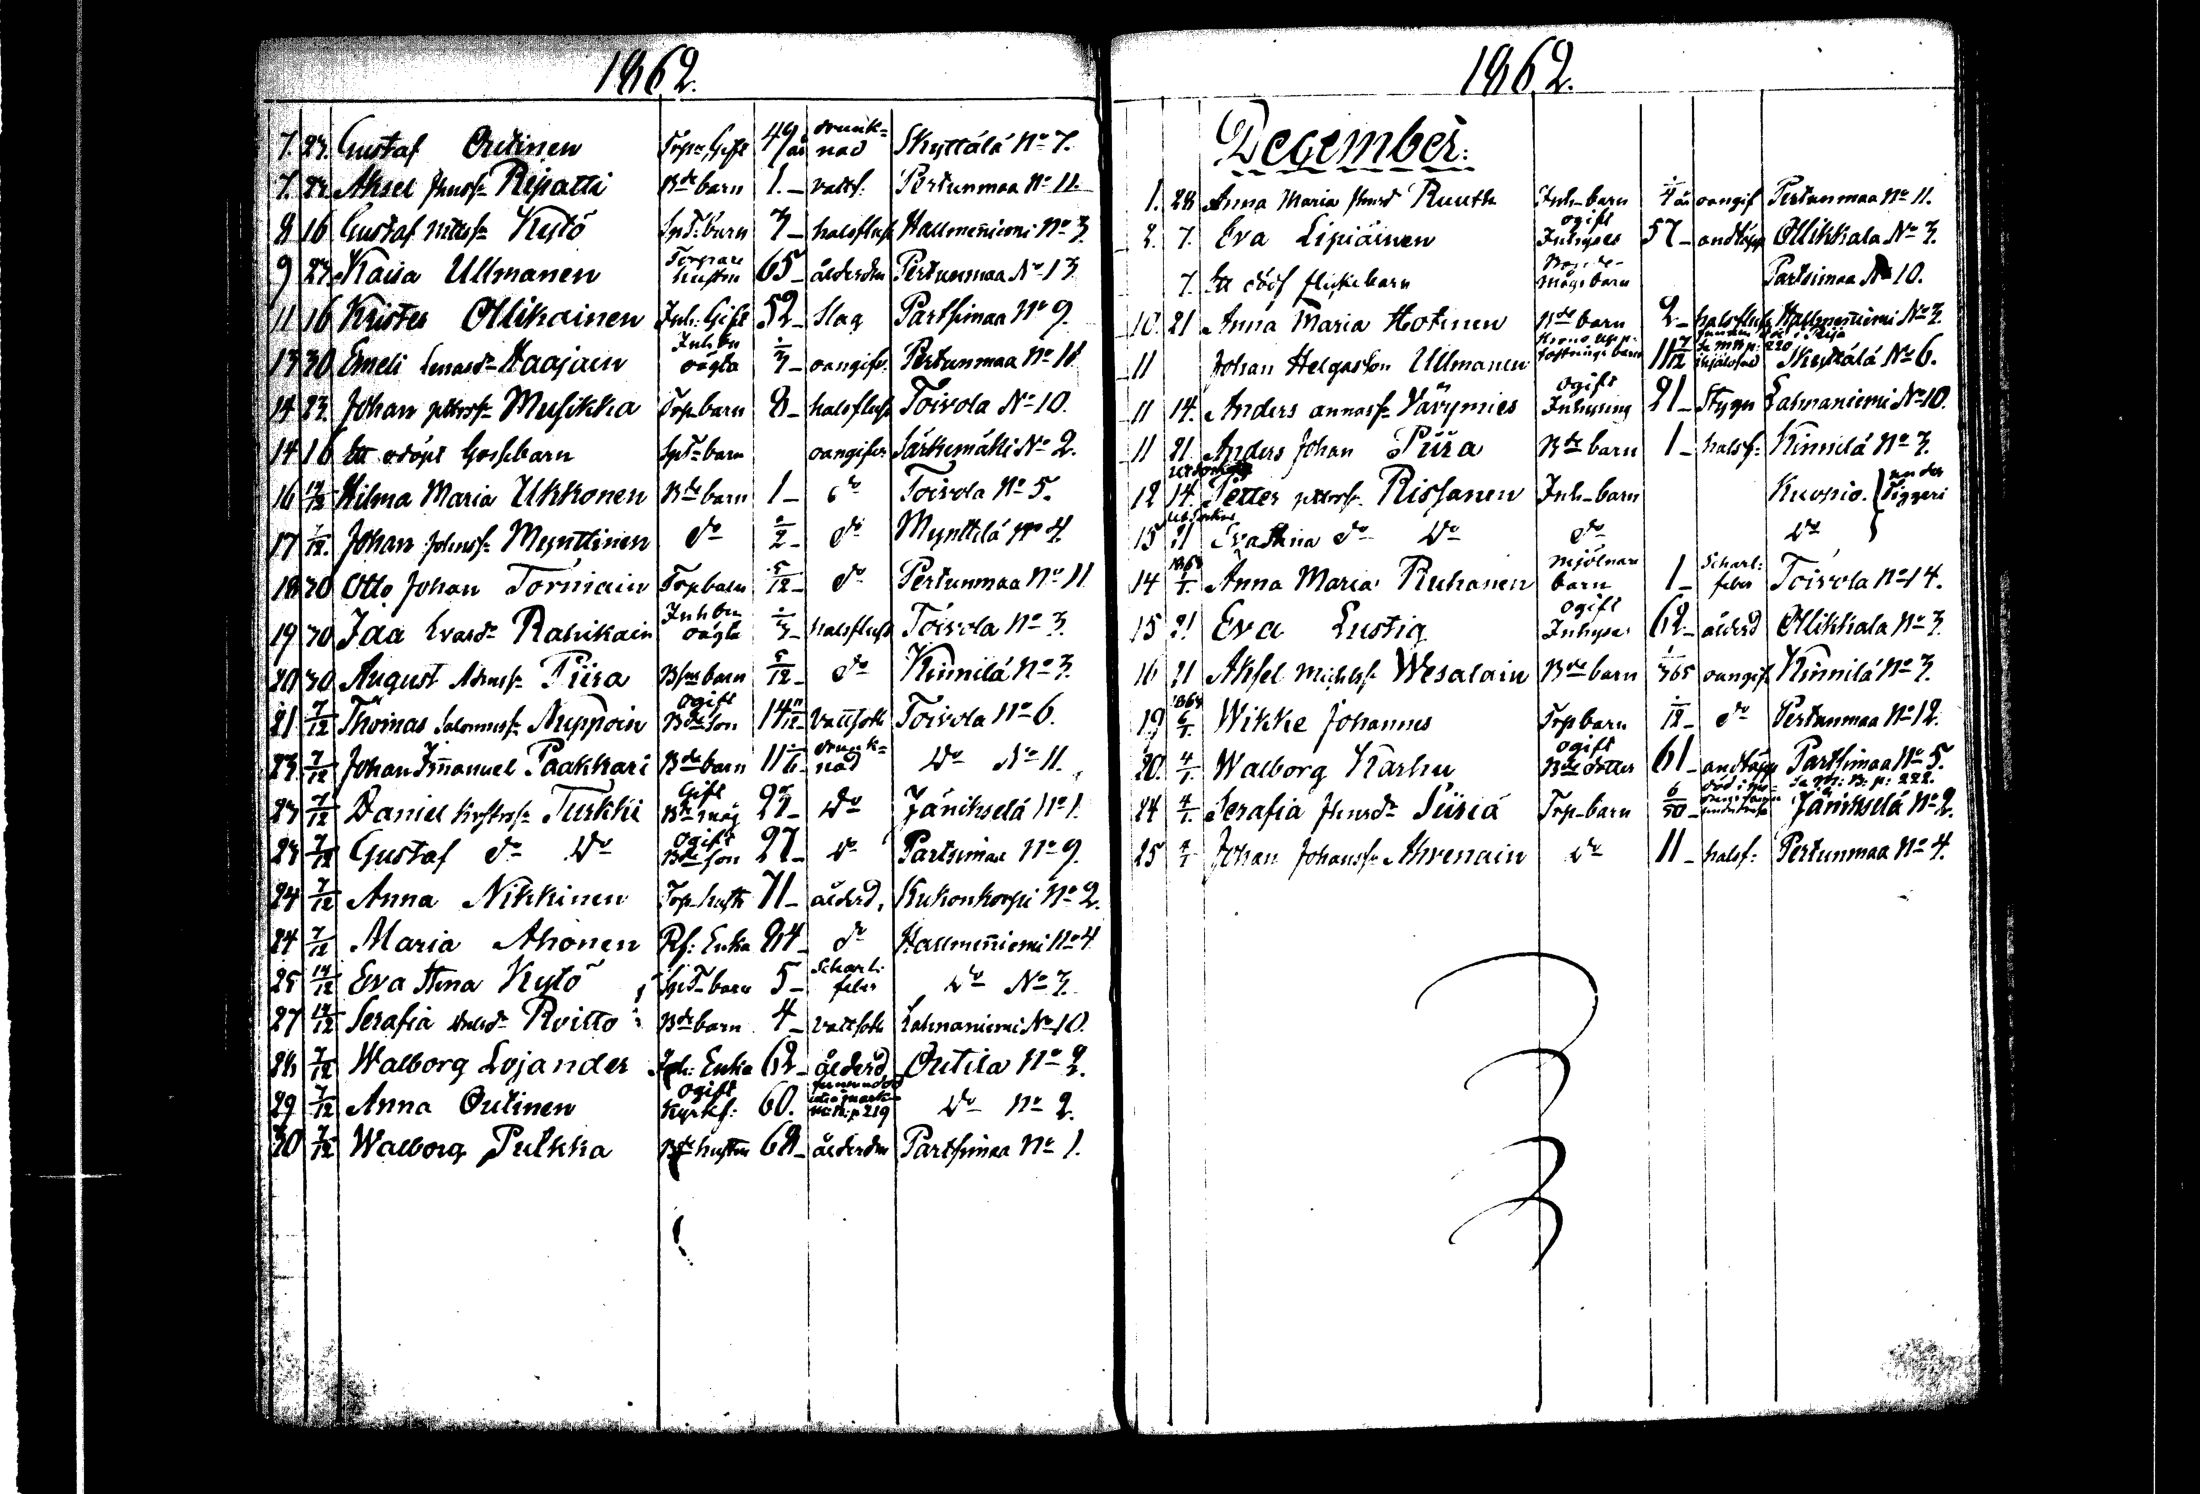 1862.
7. 23. Gustaf Outinen Torp. Gift 49/år drunk=nad Skyttälä No 7.
7. 23. Aksel Jhnsf. Repatti Bde barn 1. _ vattf. Pertunmaa No 11.
8 16 Gustaf Kytö SpT. barn 3 _ halsfluss Hallmeniemi No 3.
9 23. Kaisa Ullmanen Torpare hustru 65 _ ålderdm Pertunmaa No 13
11 16 Krister Ollikainen Inh: Gift 52 _ slag Partsimaa No 9.
13 30 Emeli Haajain Inh. oägta oangifv. Pertunmaa No 11
14 23. Johan pettersf. Musikka Torp barn 8 _ halsfluss Toivola No 10.
14 16 Ett odöpt Gossebarn SpT= barn oangifv Särkemäki No 2.
16 14/12 Hilma Maria Ukkonen Bde barn 1 _ do Toivola No 5.
17 7/12. Johan Johnsf. Mynttinen do do Mynttilä No 4
18 30 Otto Johan Torniain Torp barn 5/12 _ do Pertunmaa No 11
19 30 Ida Evasdr Rahikain Inh. oägta halsfluss Toivola No 3.
20 30 August Admsf. Piira barn 5/12 _ do Kinnilä No 3.
21 7/12 Thomas Salomonsf. Nuppoin ogift Bde Son 14 11/12 Vattsot Toivola No 6.
23. 7/12 Johan Immanuel Paakkari Bde barn 11 drunk=nad Do No 11.
23 7/12 Daniel Turkki Gift Bde måg Do Jänikselä No 1.
23 7/12 Gustaf do Do ogift Bde son 27 _ Do Partsimaa No 9.
24 7/12 Anna Nikkinen Torp. hustr 71 _ ålderd. Kukonkorpi No 2.
24 7/12 Maria Ahonen Rf: Enka 84 _ do Hallmeniemi No 4
25 14/12 Eva Stina Kytö SpT= barn 5 _ Scharl: feber Do No 3.
27 14/12 Serafia Roitto Bde barn 4 _ vattsot Lahnaniemi No 10.
28 7/12 Walborg Lojander Inh: Enka 62 _ ålderd Outila No 2.
29 7/12 Anna Outinen ogift Kyrkf: 60. p 219 Do No 2.
30 7/12 Walborg Pulkka Bde hustru 68 _ ålderdm Partsimaa No 1.
1862.
December:
1. 28 Anna Maria Jhnsd Ruuth Inh. barn oangif Pertunmaa No 11.
2. 7. Eva Lipiäinen ogift Inhyses 57 _ andtäpp Ollikkala No 3.
7. Ett dödf flickebarn mågs barn Partsimaa No 10.
10. 21 Anna Maria Hotinen Bde barn 2 _ halsfluss Hallmeniemi No 3.
11 Johan Helgasson Ullmanen fostrings barn 11 7/12 p: 220 Skyttälä No 6.
11 14. Anders annasf. Värymies ogift Inhysing 21 _ Stygn Lahnaniemi No 10.
11 21. Anders Johan Piira Bde barn 1 _ halsf: Kinnilä No 3.
12 14. Petter pettersf. Rissanen Inh. barn Kuopio. } under
15 21 Eva Stina do Do do Do
14 1863 4/1. Anna Maria Ruhanen mjölnare barn 1 _ Scharl: feber Toivola No 14.
15 21 Eva Lustig ogift Inhyses 62 _ ålderd Ollikkala No 3.
16 21 Aksel Michelsf. Wesalain Bde barn 1/365 oangif Kinnilä No 3.
19 1863 6/1. Wikke Johannes Torp barn do Pertunmaa No 12.
20. 4/1. Walborg Karhu ogift Bde dotter 61 _ andtäpp Partsimaa No 5.
24 4/1. Serafia Jhnsdr Siiriä Torp. barn 6/30 _ p: 222. Jänikselä No 2.
25 4/1 Johan Johansf. Ahvenain Do 11 _ halsf: Pertunmaa No 4.